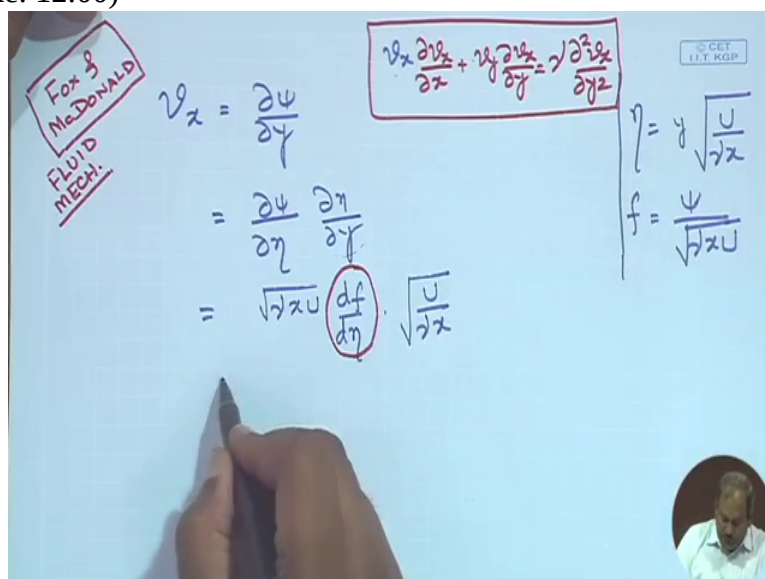 c. 12:00)
Fox &
McDONALD
FLUID
MECH.
𝒱x ∂𝒱x/∂x + 𝒱y ∂𝒱x/∂y = ν ∂²𝒱x/∂y2
© CET
I.I.T. KGP
𝒱x = ∂ψ/∂y
= ∂ψ/∂η ∂η/∂y
= √νxU df/dη · √U/νx
η = y √U/νx
f = ψ/√νxU